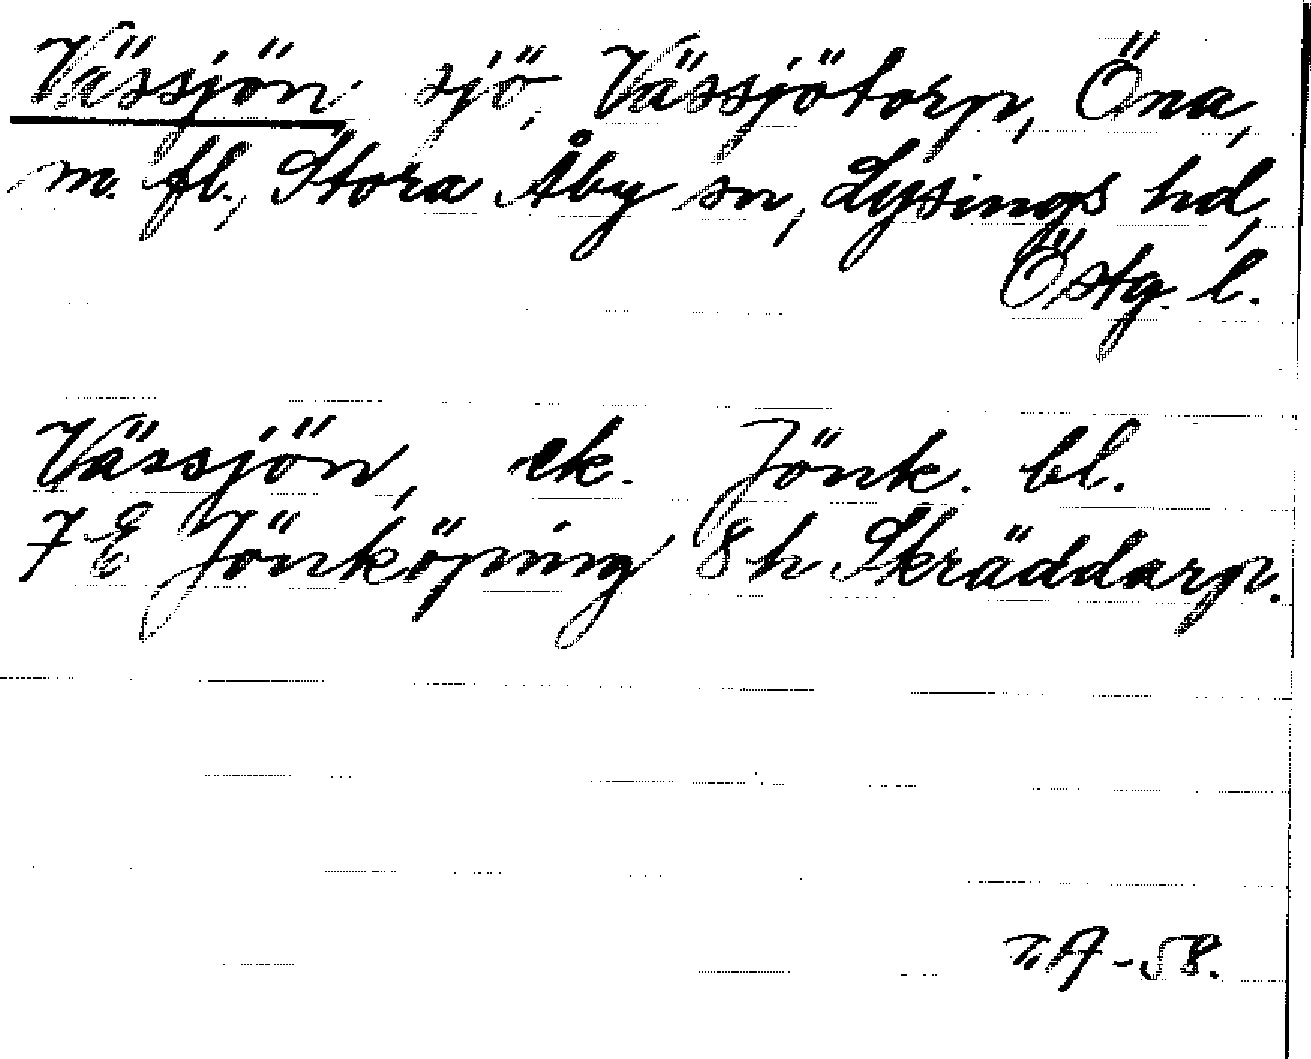 Vässjön sjö, Vässjötorp, Öna,
m. fl., Stora Åby sn, Lysings hd,
Östg. l.
Vässjön, ek. Jönk. bl.
7 E Jönköping 8 h Skräddarp.
-58.